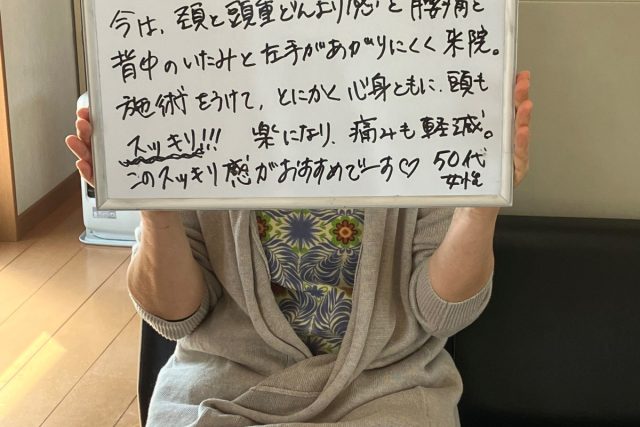 今は、頚と頭重どんより感と腰痛と
背中のいたみと左手があがりにくく来院。
施術をうけて、とにかく心身ともに、頭も
スッキリ!!! 楽になり、痛みも軽減。
このスッキリ感がおすすめでーす♡ 50代
女性